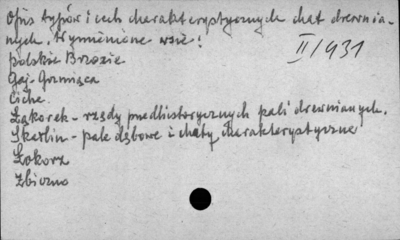 Opis typów i cech charakterystycznych chat drewnia-
nych. Wymienione wsie:
II/1931
polskie Brzozie
Gaj-Grzmięca
Ciche
Łąkorek - rzędy przedhistorycznych pali drewnianych.
Skarlin - pale dębowe i chaty charakterystyczne
Łokorz
Zbiczno